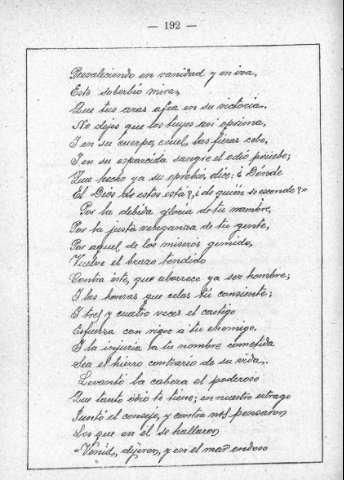 — 192 —
Prevaleciendo en vanidad y en ira,
Este soberbio mira,
Que tus aras afea en su victoria.
No dejes que los tuyos así oprima,
I en su cuerpo, cruel, las fieras cebe,
I en su esparcida sangre el odio pruebe;
Que hecho ya su oprobio, dice: ¿Dónde
El Dios de estos está?, ¿de quién se esconde?»
Por la debida gloria de tu nombre,
Por la justa venganza de tu gente,
Por aquel de los míseros gemido,
Vuelve el brazo tendido
Contra éste, que aborrece ya ser hombre;
I las honras que celas tú consiente;
I tres y cuatro veces el castigo
Esfuerza con rigor a tu enemigo,
I la injuria a tu nombre cometida
Sea el hierro contrario de su vida.
Levantó la cabeza el poderoso
Que tanto odio te tiene; en nuestro estrago
Juntó el consejo, y contra nos pensaron
Los que en él se hallaron
«Venid, dijeron, y en el mar ondoso